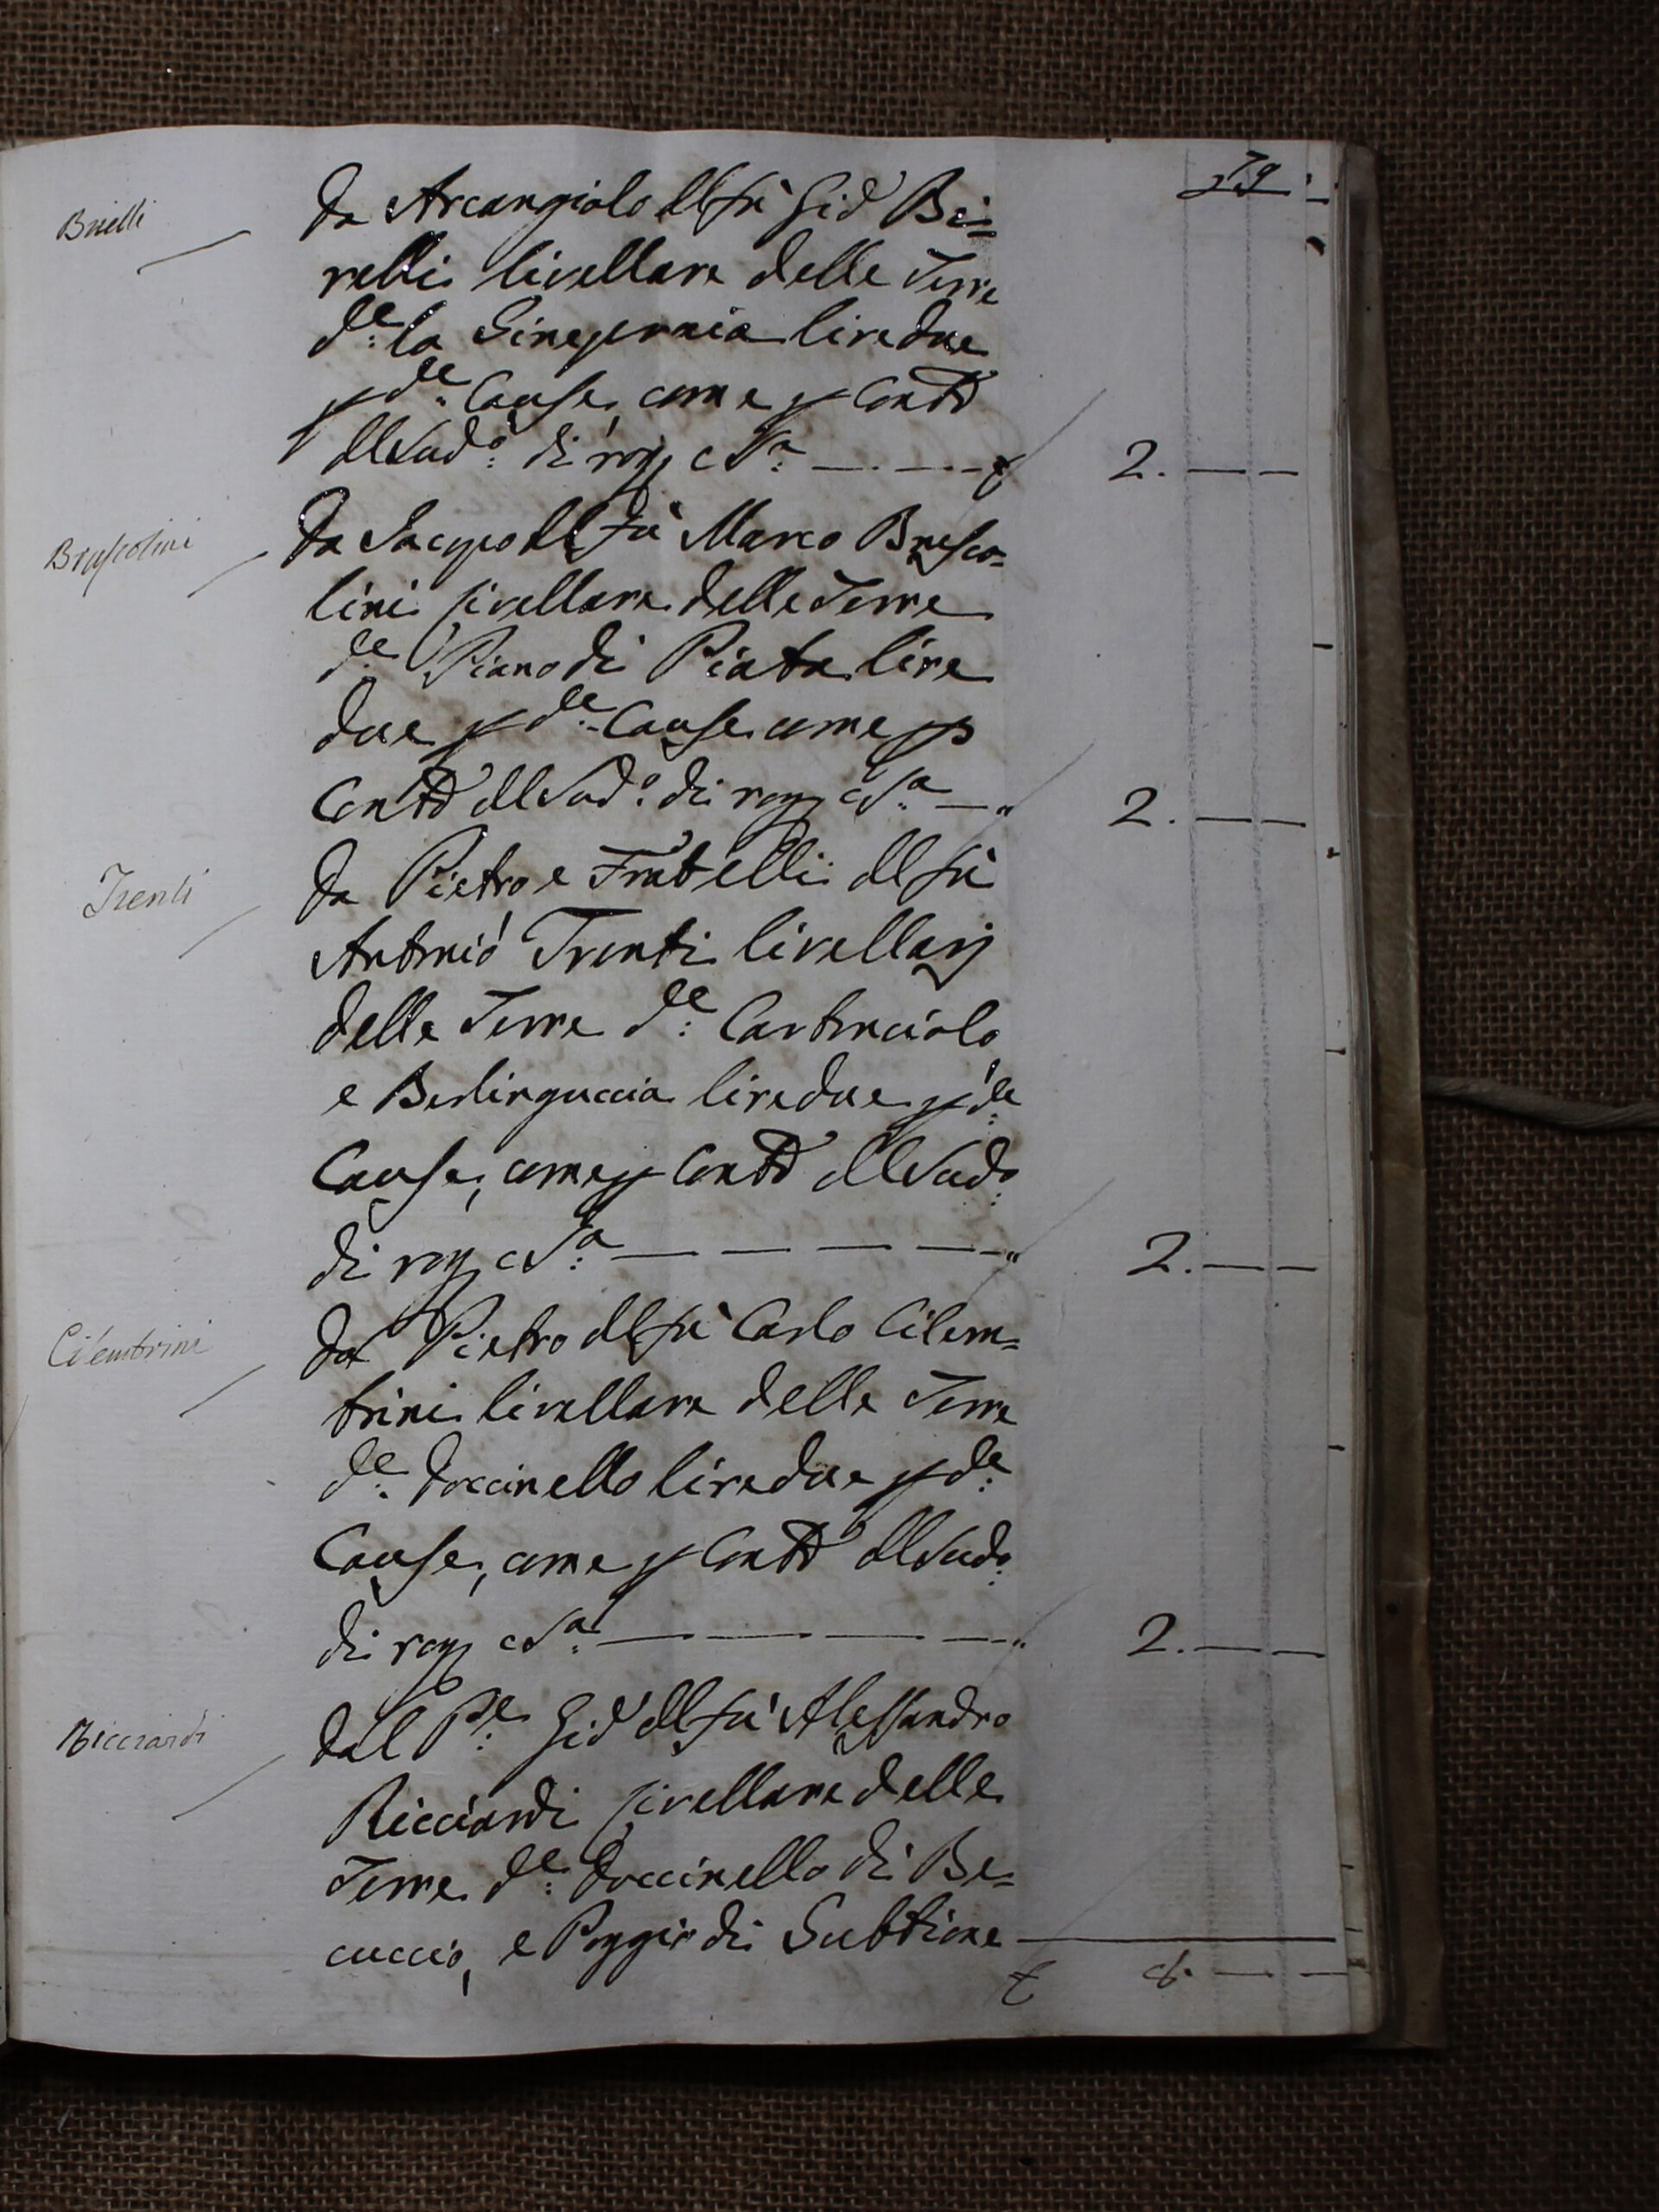 79
Birelli
Da Arcangiolo del fù Gio Bi=
relli livellare delle Terre
d.e la Sinepernia lire due
p d.e Cause, come p Contto
del Sud.o di rog c S.a — — — £ 2. — —
Bruscolini
Da Jacopo del fù Marco Brusco=
lini livellare delle Terre
d.e Piano di Piata lire
due p d.e Cause come p
Contto del Sud.o di rog c S.a — " 2. — —
Trenti
Da Pietro e Fratelli del fù
Antonio Trenti livellarj
delle Terre d.e
e Berlinguccia lire due p d.e
Cause, come p Contto del Sud.o
di rog c S.a — — — — " 2. — —
Cilembrini
Da Pietro del fù Carlo Cilem=
brini livellare delle Terre
d.e Doccinello lire due p d.e
Cause, come p Contto del Sud.o
di rog c S.a — — — — " 2. — —
Ricciardi
Dal P.e Gio del fù Alessandro
Ricciardi livellare delle
Terre d.e Doccinello di Be=
cuccio, e Poggio di
£ 8. — —